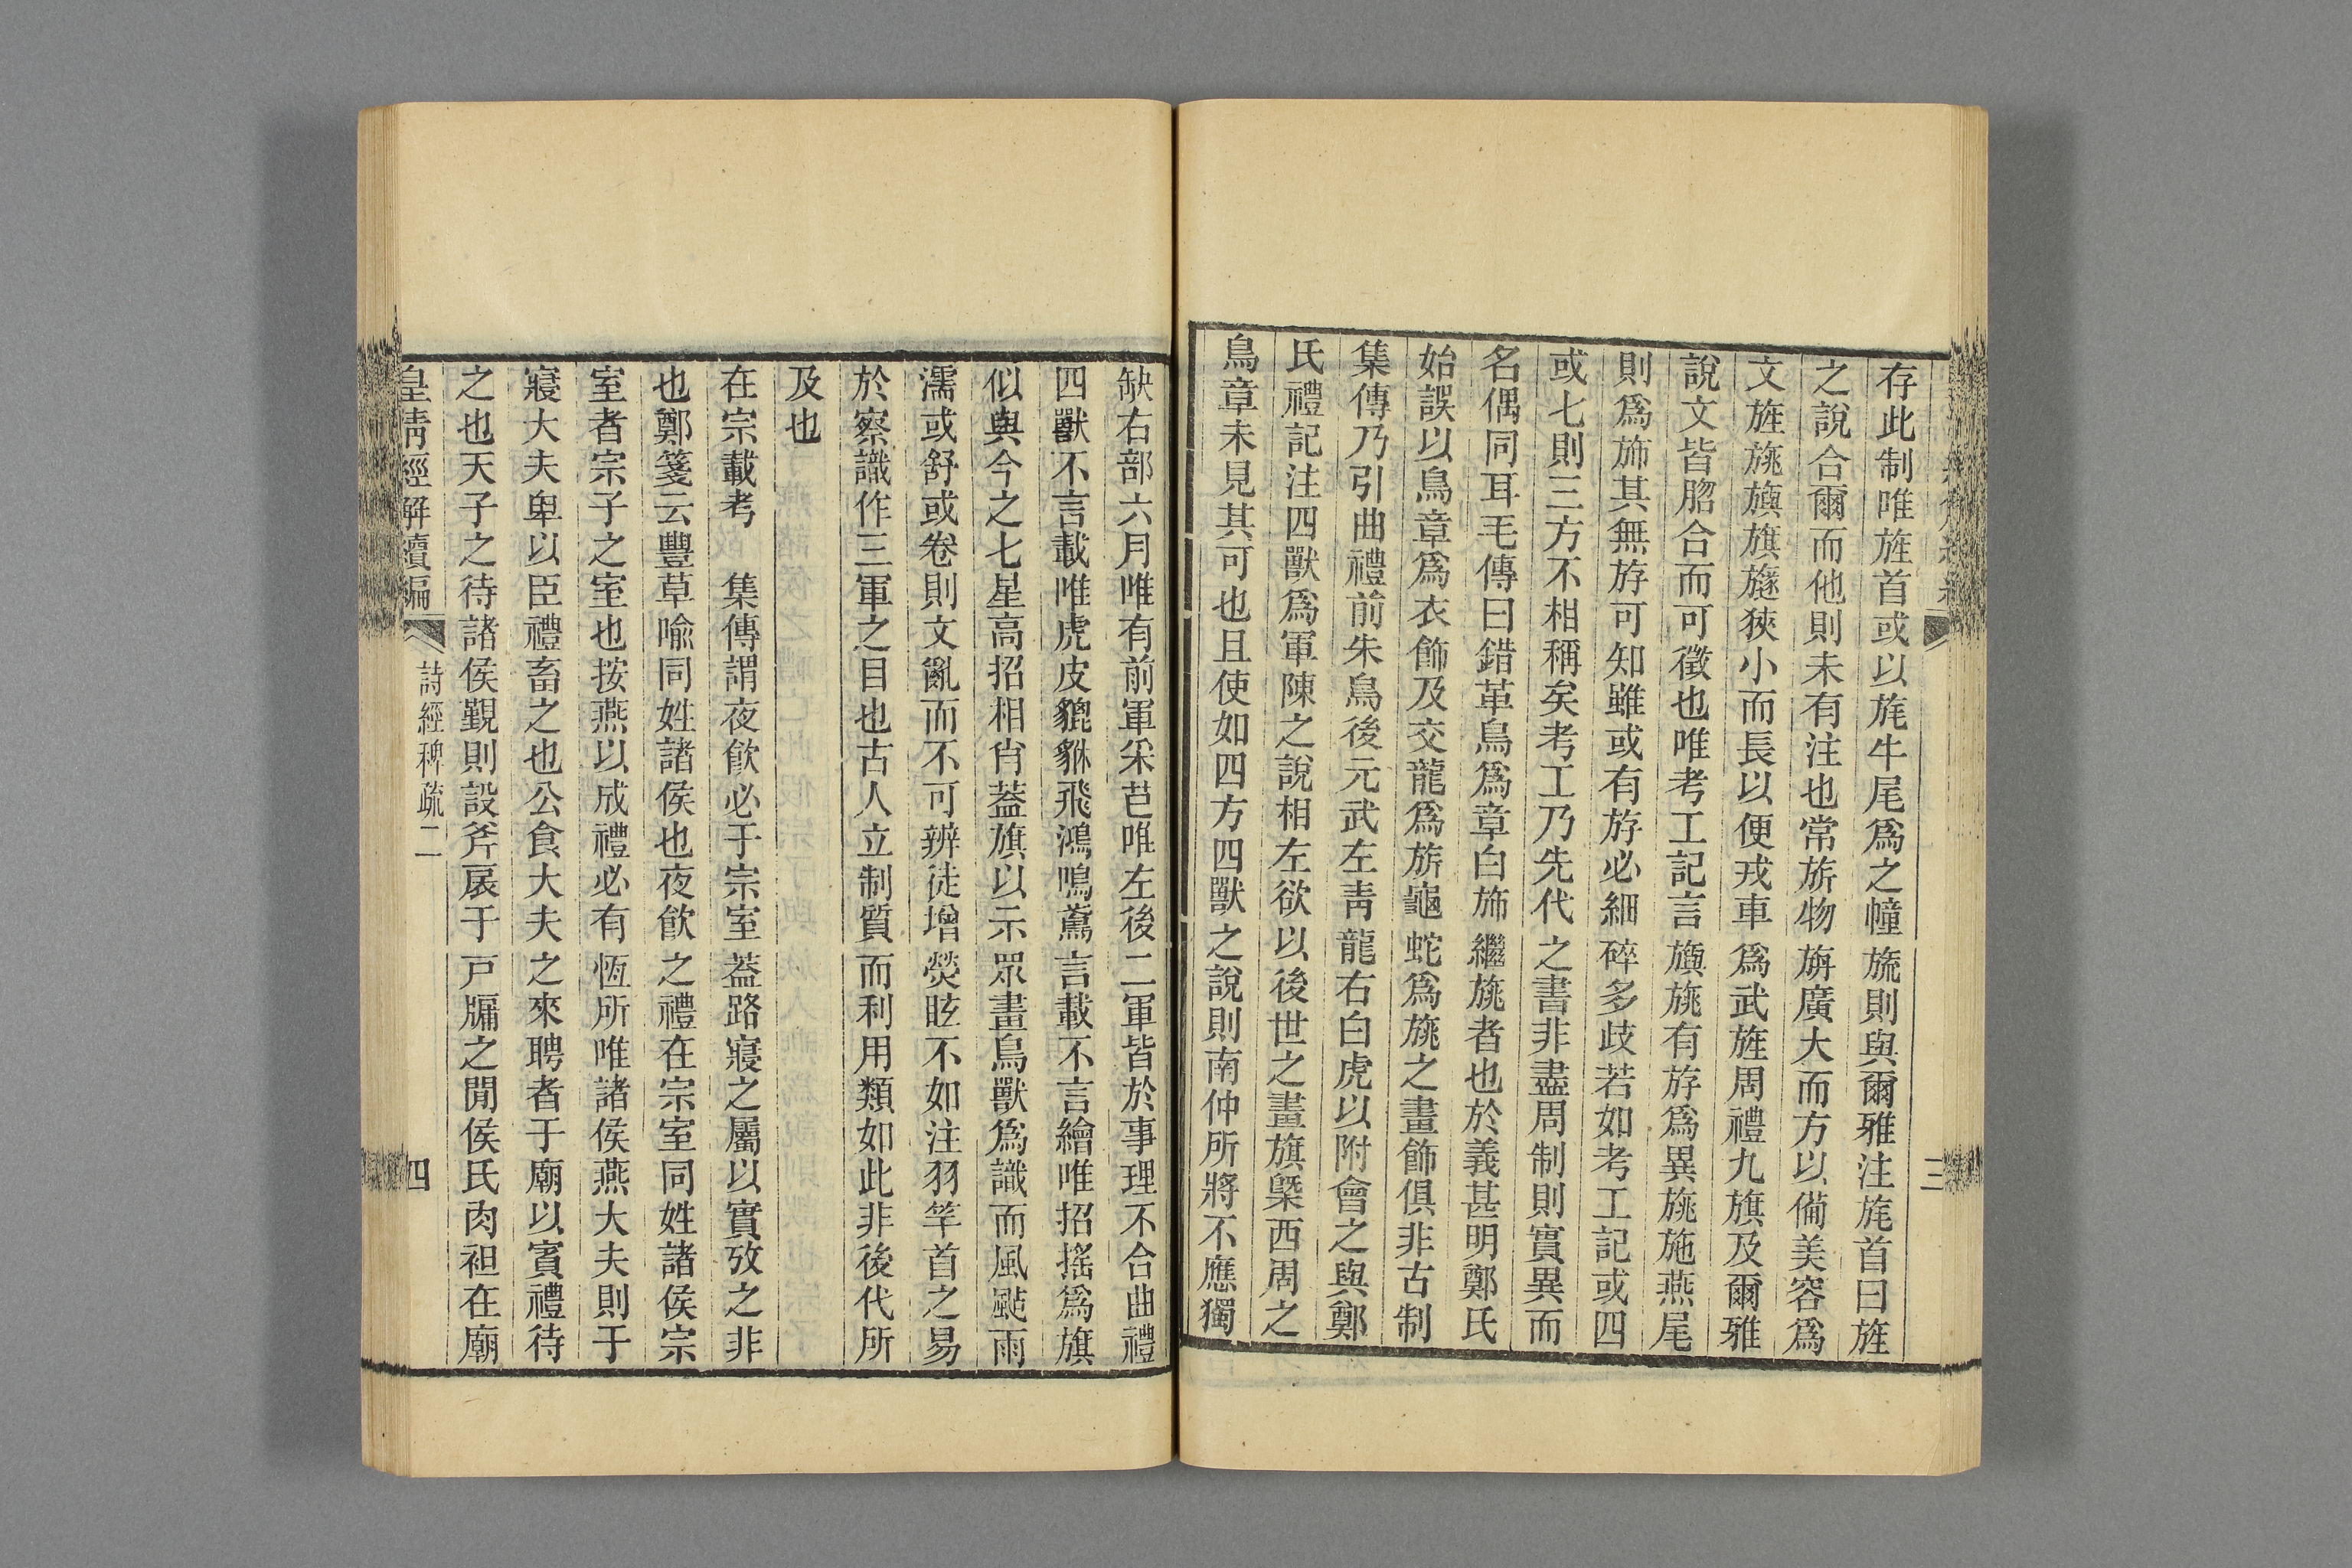 存此制唯旌首或以旄牛尾爲之幢旒則與爾雅注旄首曰旌
之說合爾而他則未有注也常旂物旃廣大而方以備美容爲
文旌旐旟旗旞狹小而長以便戎車爲武旌周禮九旗及爾雅
說文皆脗合而可徵也唯考工記言旟旐有斿爲異旐施燕尾
則爲斾其無斿可知雖或有斿必細碎多歧若如考工記或四
或七則三方不相稱矣考工乃先代之書非盡周制則實異而
名偶同耳毛傳曰錯革鳥爲章白斾繼旐者也於義甚明鄭氏
始誤以鳥章爲衣飾及交龍爲旂龜蛇爲旐之畫飾俱非古制
集傳乃引曲禮前朱鳥後元武左靑龍右白虎以附會之與鄭
氏禮記注四獸爲軍陳之說相左欲以後世之畫旗槩西周之
鳥章未見其可也且使如四方四獸之說則南仲所將不應獨
三
缺右部六月唯有前軍采芑唯左後二軍皆於事理不合曲禮
四獸不言載唯虎皮貔貅飛鴻鳴鳶言載不言繪唯招搖爲旗
似與今之七星高招相肖蓋旗以示眾畫鳥獸爲識而風颭雨
濡或舒或卷則文亂而不可辨徒增熒眩不如注羽竿首之易
於察識作三軍之目也古人立制質而利用類如此非後代所
及也
在宗載考　集傳謂夜飮必于宗室蓋路寢之屬以實攷之非
也鄭箋云豐草喻同姓諸侯也夜飮之禮在宗室同姓諸侯宗
室者宗子之室也按燕以成禮必有恆所唯諸侯燕大夫則于
寢大夫卑以臣禮畜之也公食大夫之來聘者于廟以賓禮待
之也天子之待諸侯覲則設斧扆于戸牖之閒侯氏肉袒在廟
皇淸經解續編
詩經稗疏二
四